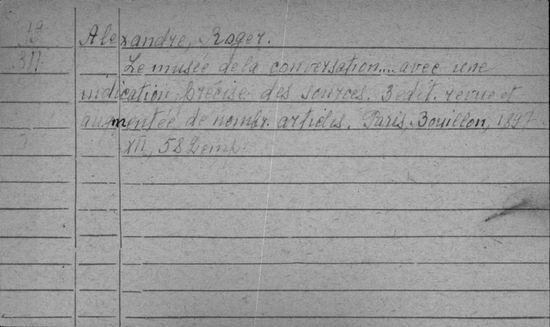 Alexandre, Roger.
Le musée de la conversation.... avec une
indication précise des sources. 3 edit. revue et
augmentée de nombr. articles. Paris, Bouillon, 1897
XII,